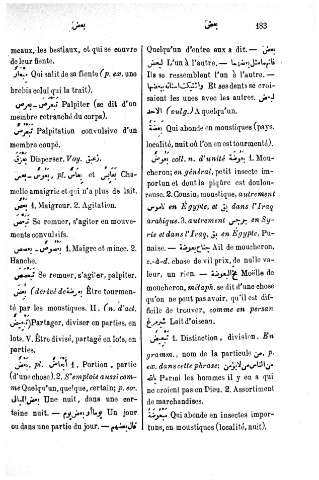 بعض
بعض
183
meaux, les bestiaux, et qui se couvre
de leur fiente.
Qui salit de sa fiente (p. ex. une
brebis celui qui la trait).
Palpiter (se dit d'un
membre retranché du corps).
Palpitation convulsive d'un
membre coupé.
Disperser. Voy.
Chamelle amaigrie et qui n'a plus de lait.
1. Maigreur. 2. Agitation.
Se remuer, s'agiter en mouvements convulsifs.
1. Maigre et mince. 2.
Hanche.
Se remuer, s'agiter, palpiter.
بعض (dérivé de بعوضة) Être tourmenté par les moustiques. II. (n. d'act.
) Partager, diviser en parties, en
lots. V. Être divisé, partagé en lots, en
parties.
بعض, pl. أبعاض 1. Portion, partie
(d'une chose). 2. S'emploie aussi comme Quelqu'un, quelque, certain; p. ex.
Une nuit, dans une certaine nuit. — يوما أو بعض يوم Un jour
ou dans une partie du jour. —
Quelqu'un d'entre eux a dit. —
L'un à l'autre. —
Ils se ressemblent l'un à l'autre. —
Et ses dents se croisaient les unes avec les autres.
(vulg.) A quelqu'un.
Qui abonde en moustiques (pays,
localité, nuit où l'on en est tourmenté).
بعوض coll. n. d'unité بعوضة 1. Moucheron; en général, petit insecte importun et dont la piqûre est douloureuse. 2. Cousin, moustique, autrement
en Égypte, et بق dans l'Iraq
arabique. 3. autrement en Syrie et dans l'Iraq, بق en Égypte, Punaise. — جناح بعوضة Ail de moucheron,
c.-à-d. chose de vil prix, de nulle valeur, un rien. — مخ البعوضة Moëlle de
moucheron, métaph. se dit d'une chose
qu'on ne peut avoir, qu'il est difficile de trouver, comme en persan
شير مرغ Lait d'oiseau.
1. Distinction, division. En
gramm., nom de la particule من, p.
ex. dans cette phrase;
Parmi les hommes il y en a qui
ne croient pas en Dieu. 2. Assortiment
de marchandises.
Qui abonde en insectes importuns, en moustiques (localité, nuit).